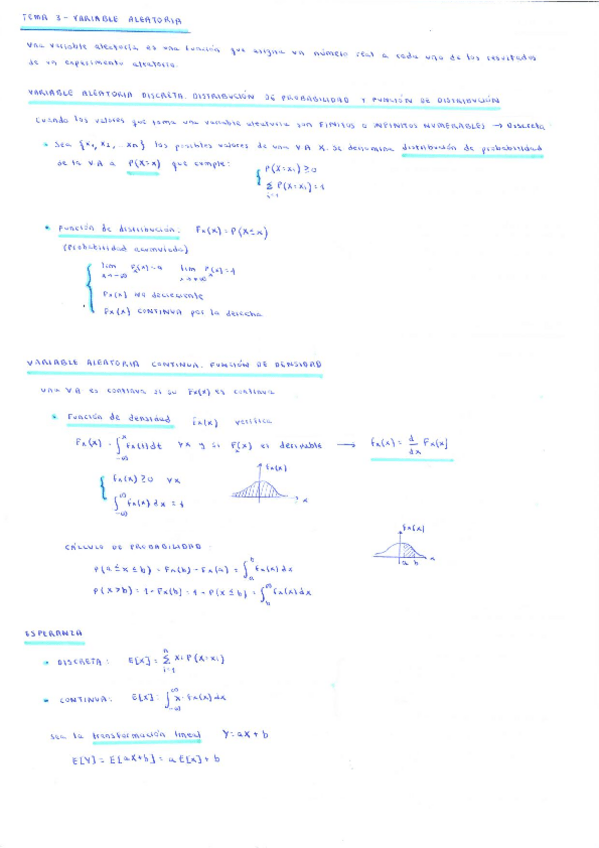 TEMA 3 - VARIABLE ALEATORIA
Una variable aleatoria es una función que asigna un número real a cada uno de los resultados
de un experimento aleatorio.
VARIABLE ALEATORIA DISCRETA. DISTRIBUCIÓN DE PROBABILIDAD Y FUNCIÓN DE DISTRIBUCIÓN
Cuando los valores que toma una variable aleatoria son FINITOS O INFINITOS NUMERABLES → DISCRETA
Sea {x₁, x₂, ... xn} los posibles valores de una VA X. Se denomina distribución de probabilidad
de la VA a P(X=x) que cumple: P(X=xi) ≥ 0
Σ P(X=xi) = 1
i=1
Función de distribución: Fx(x) = P(X≤x)
(Probabilidad acumulada)
lim Fx(x) = 0 lim Fx(x) = 1
x→-∞ x→+∞
Fx(x) no decreciente
Fx(x) CONTINUA por la derecha
VARIABLE ALEATORIA CONTINUA. FUNCIÓN DE DENSIDAD
una VA es continua si su Fx(x) es continua
Función de densidad fx(x) verifica
Fx(x) = ∫_{-∞}^{x} fx(t)dt ∀x y si Fx(x) es derivable → fx(x) = d/dx Fx(x)
fx(x) ≥ 0 ∀x
fx(x)
x
∫_{-∞}^{∞} fx(x) dx = 1
CÁLCULO DE PROBABILIDAD
fx(x)
a b x
P(a≤x≤b) = Fx(b) - Fx(a) = ∫_{a}^{b} fx(x) dx
P(x>b) = 1 - Fx(b) = 1 - P(x≤b) = ∫_{b}^{∞} fx(x) dx
ESPERANZA
DISCRETA: E[X] = Σ_{i=1}^{n} xi P(X=xi)
CONTINUA: E[X] = ∫_{-∞}^{∞} x · fx(x) dx
Sea la transformación lineal Y = aX + b
E[Y] = E[aX+b] = a E[X] + b